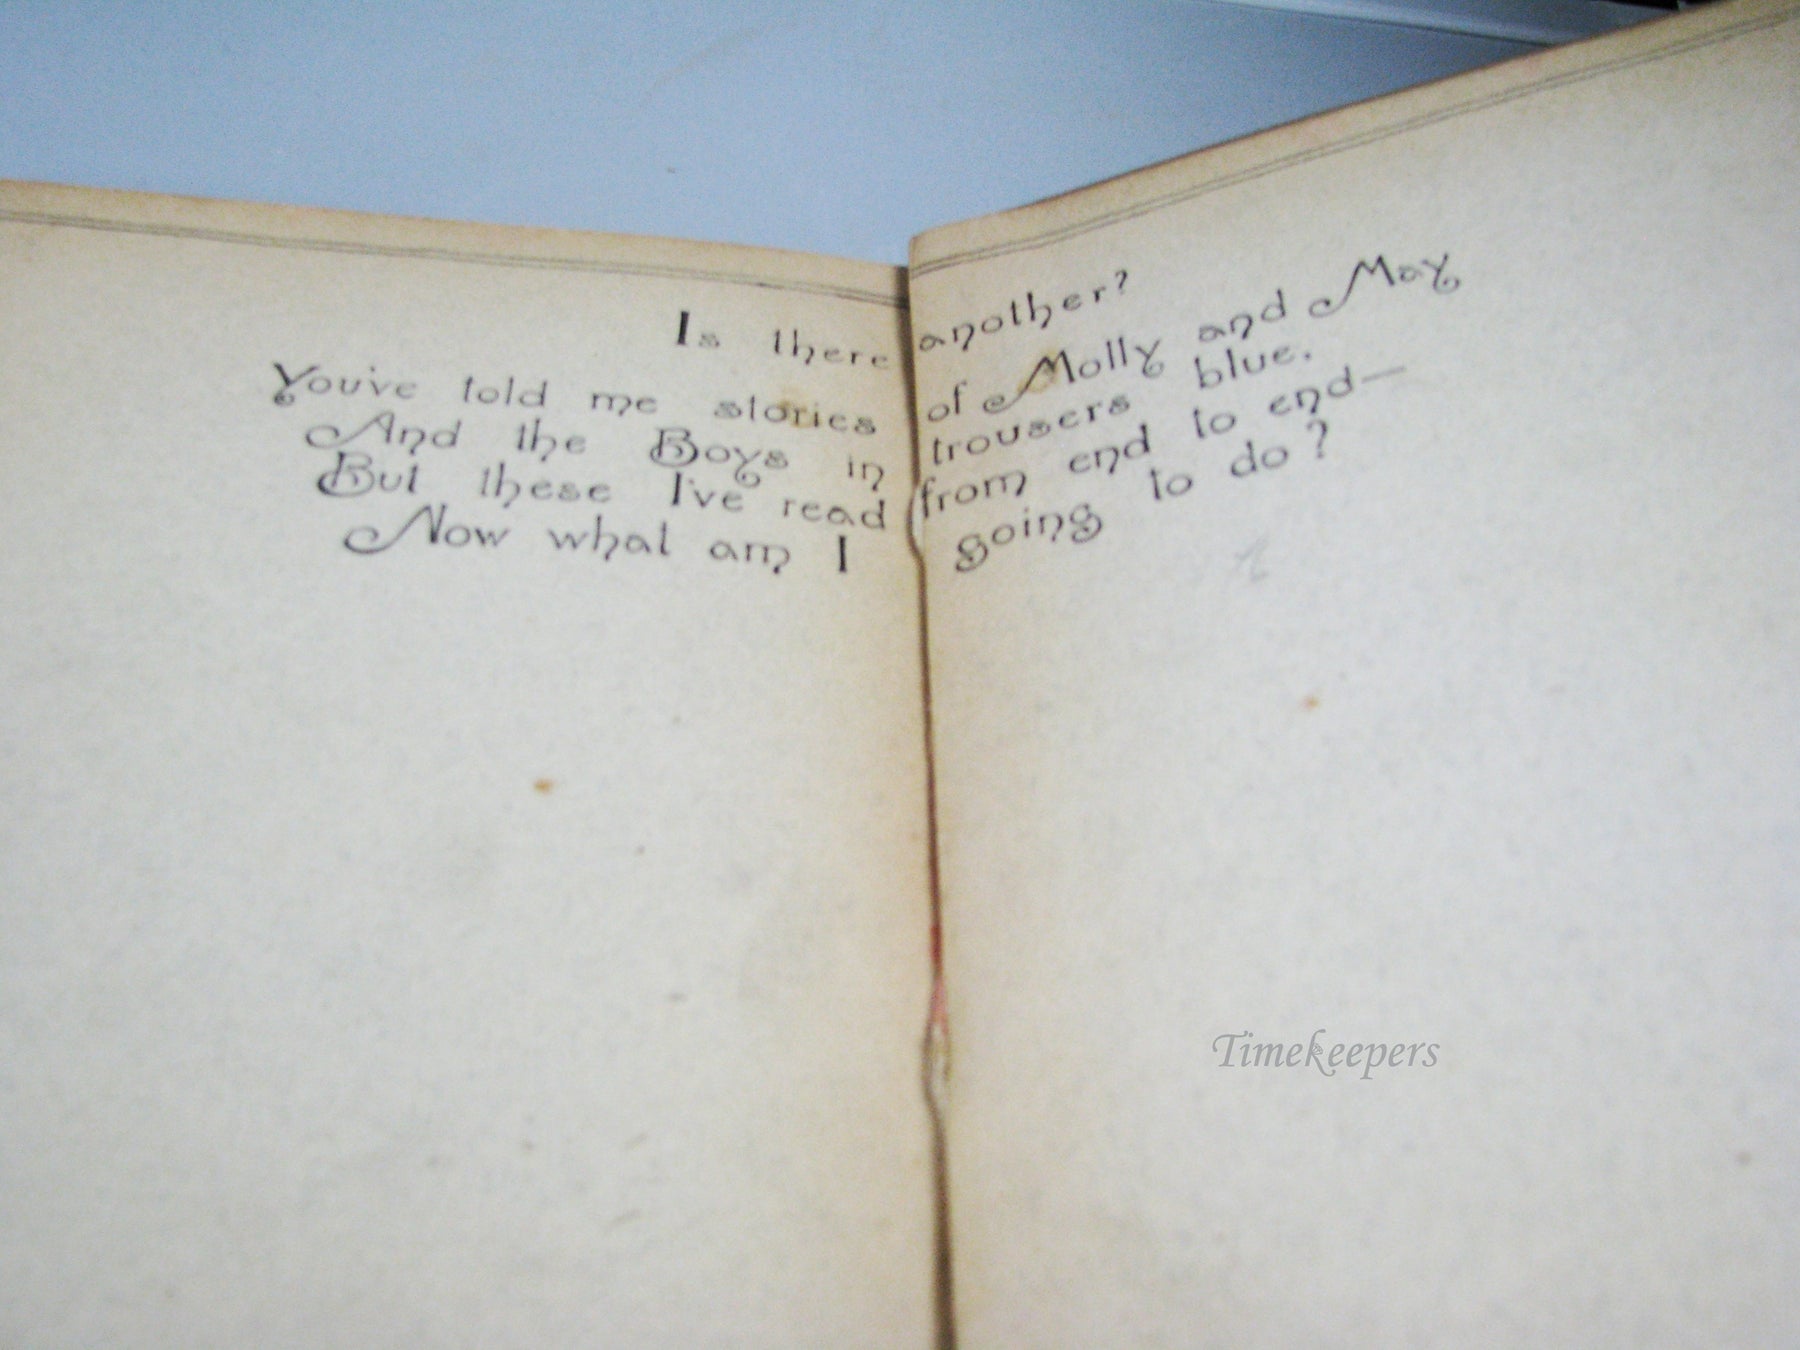 Is there another?
You've told me stories of Molly and May
And the Boys in trousers blue.
But these I've read from end to end—
Now what am I going to do?
Timekeepers